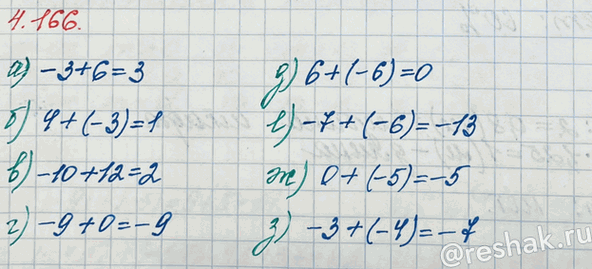 4.166.
а) -3+6=3
б) 4+(-3)=1
в) -10+12=2
г) -9+0=-9
д) 6+(-6)=0
е) -7+(-6)=-13
ж) 0+(-5)=-5
з) -3+(-4)=-7
@reshak.ru